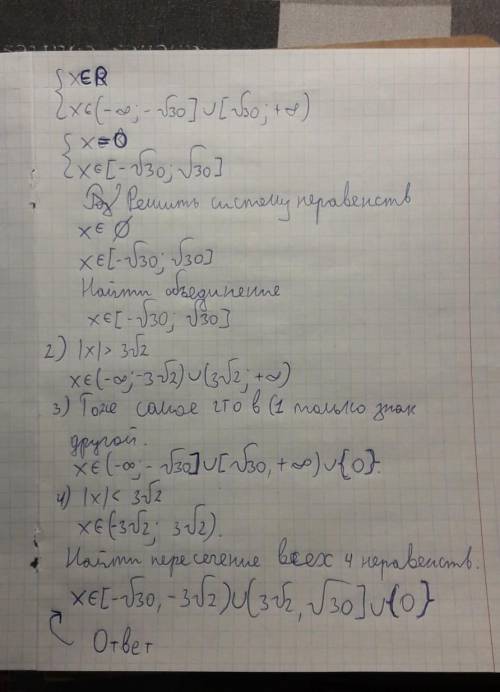 {x∈R
{x∈(-∞; -√30]∪[√30; +∞)
{x=0
{x∈[-√30; √30]
Решить систему неравенств
x∈∅
x∈[-√30; √30]
Найти объединение
x∈[-√30; √30]
2) |x|>3√2
x∈(-∞; -3√2)∪(3√2; +∞)
3) Тоже самое что в (1 только знак
другой.
x∈(-∞; -√30]∪[√30, +∞)∪{0}.
4) |x|<3√2
x∈(-3√2; 3√2).
Найти пересечение всех 4 неравенств.
x∈[-√30, -3√2)∪(3√2, √30]∪{0}
Ответ